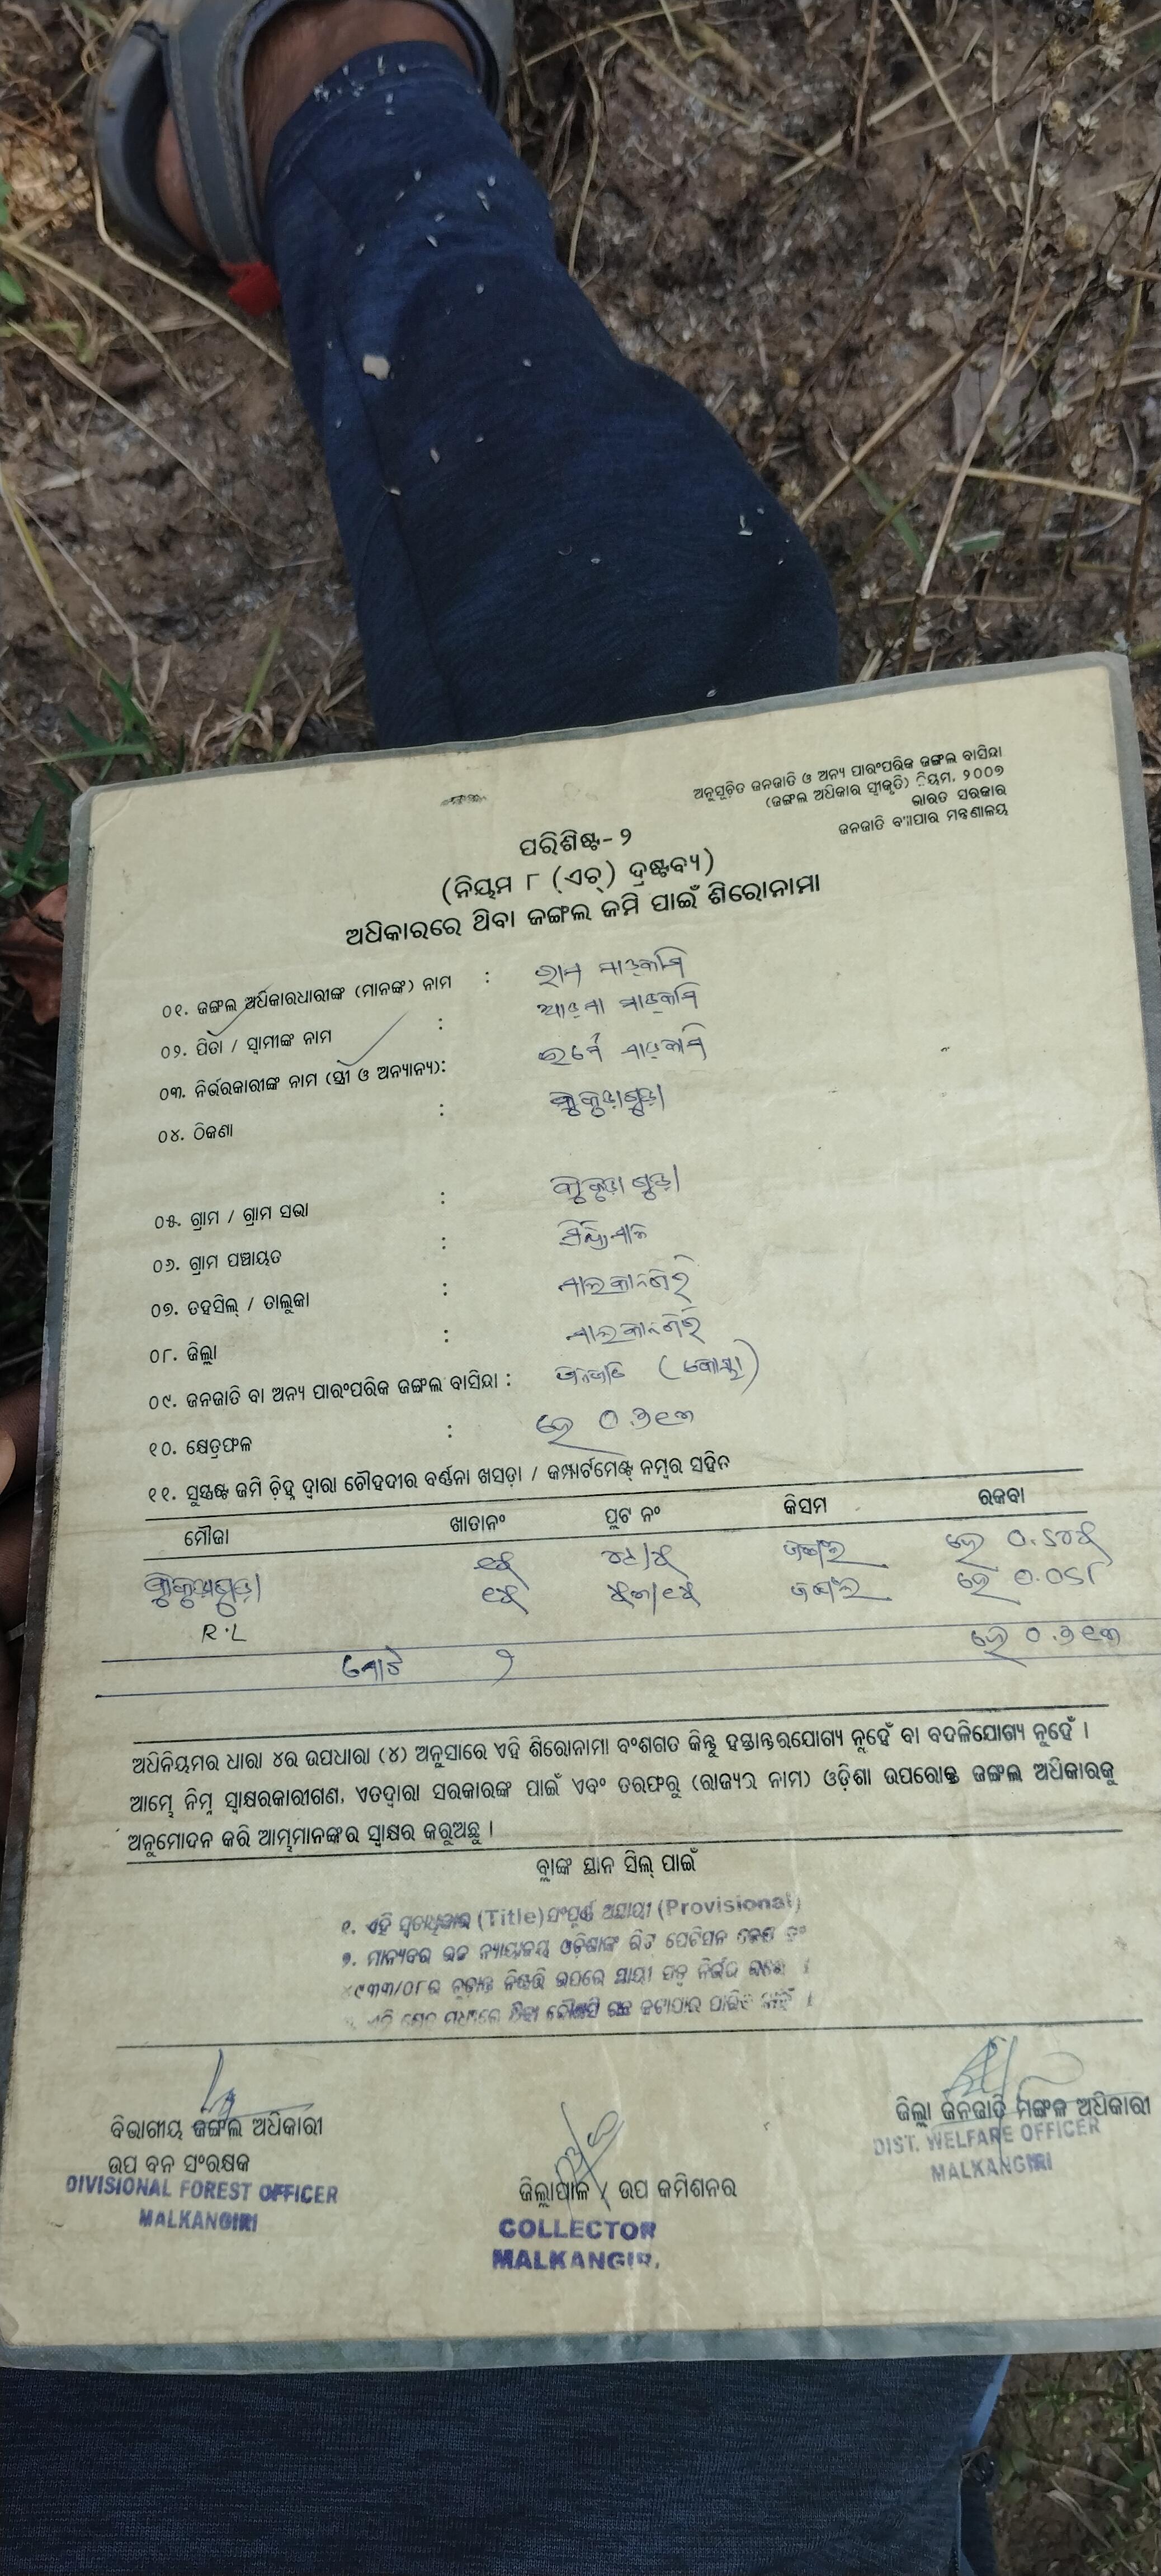 ଅନୁସୂଚିତ ଜନଜାତି ଓ ଅନ୍ୟ ପାରଂପରିକ ଜଙ୍ଗଲ ବାସିନ୍ଦା
(ଜଙ୍ଗଲ ଅଧିକାର ସ୍ୱୀକୃତି) ନିୟମ, ୨୦୦୭
ଭାରତ ସରକାର
ଜନଜାତି ବ୍ୟାପାର ମନ୍ତ୍ରଣାଳୟ
ପରିଶିଷ୍ଟ-୨
(ନିୟମ ୮ (ଏଚ୍) ଦ୍ରଷ୍ଟବ୍ୟ)
ଅଧିକାରରେ ଥିବା ଜଙ୍ଗଲ ଜମି ପାଇଁ ଶିରୋନାମା
୦୧. ଜଙ୍ଗଲ ଅଧିକାରଧାରୀଙ୍କ (ମାନଙ୍କ) ନାମ : ରାମ ମାଡ଼କାମି
୦୨. ପିତା / ସ୍ୱାମୀଙ୍କ ନାମ : ମାଡ଼କାମି
୦୩. ନିର୍ଭରକାରୀଙ୍କ ନାମ (ସ୍ତ୍ରୀ ଓ ଅନ୍ୟାନ୍ୟ): ମାଡ଼କାମି
୦୪. ଠିକଣା : କୁକୁଡ଼ାଗୁଡ଼ା
୦୫. ଗ୍ରାମ / ଗ୍ରାମ ସଭା : କୁକୁଡ଼ାଗୁଡ଼ା
୦୬. ଗ୍ରାମ ପଞ୍ଚାୟତ :
୦୭. ତହସିଲ୍ / ତାଲୁକା : ମାଲକାନଗିରି
୦୮. ଜିଲ୍ଲା : ମାଲକାନଗିରି
୦୯. ଜନଜାତି ବା ଅନ୍ୟ ପାରଂପରିକ ଜଙ୍ଗଲ ବାସିନ୍ଦା : ଜନଜାତି (କୋୟା)
୧୦. କ୍ଷେତ୍ରଫଳ : ହେ ୦.୨୧୩
୧୧. ସୁସ୍ପଷ୍ଟ ଜମି ଚିହ୍ନ ଦ୍ୱାରା ଚୌହଦୀର ବର୍ଣ୍ଣନା ଖସଡ଼ା / କମ୍ପାର୍ଟମେଣ୍ଟ୍ ନମ୍ବର ସହିତ
ମୌଜା ଖାତାନଂ ପ୍ଲଟ ନଂ କିସମ ରକବା
ଜଙ୍ଗଲ ହେ
କୁକୁଡ଼ାଗୁଡ଼ା ଜଙ୍ଗଲ ହେ
R.L
ମୋଟ ୨ ହେ ୦.୨୧୩
ଅଧିନିୟମର ଧାରା ୪ର ଉପଧାରା (୪) ଅନୁସାରେ ଏହି ଶିରୋନାମା ବଂଶଗତ କିନ୍ତୁ ହସ୍ତାନ୍ତରଯୋଗ୍ୟ ନୁହେଁ ବା ବଦଳିଯୋଗ୍ୟ ନୁହେଁ ।
ଆମ୍ଭେ ନିମ୍ନ ସ୍ୱାକ୍ଷରକାରୀଗଣ, ଏତଦ୍ୱାରା ସରକାରଙ୍କ ପାଇଁ ଏବଂ ତରଫରୁ (ରାଜ୍ୟର ନାମ) ଓଡ଼ିଶା ଉପରୋକ୍ତ ଜଙ୍ଗଲ ଅଧିକାରକୁ
ଅନୁମୋଦନ କରି ଆମ୍ଭମାନଙ୍କର ସ୍ୱାକ୍ଷର କରୁଅଛୁ ।
ବ୍ଲାଙ୍କ ସ୍ଥାନ ସିଲ୍ ପାଇଁ
୧. ଏହି ସ୍ୱତ୍ୱାଧିକାର (Title) ସଂପୂର୍ଣ୍ଣ ଅସ୍ଥାୟୀ (Provisional)
୨. ମାନ୍ୟବର ଉଚ୍ଚ ନ୍ୟାୟାଳୟ ଓଡ଼ିଶାଙ୍କ ରିଟ ପେଟିସନ କେସ ନଂ
୪୯୩୩/୦୮ର ଚୂଡ଼ାନ୍ତ ନିଷ୍ପତ୍ତି ଉପରେ ସ୍ଥାୟୀ ସତ୍ୱ ନିର୍ଭର କରେ ।
ଏହି କ୍ଷେତ୍ର ମଧ୍ୟରେ ଥିବା କୌଣସି ଗଛ କଟାଯାଇ ପାରିବ ନାହିଁ ।
ବିଭାଗୀୟ ଜଙ୍ଗଲ ଅଧିକାରୀ
ଉପ ବନ ସଂରକ୍ଷକ
DIVISIONAL FOREST OFFICER
MALKANGIRI
ଜିଲ୍ଲାପାଳ / ଉପ କମିଶନର
COLLECTOR
MALKANGIRI
ଜିଲ୍ଲା ଜନଜାତି ମଙ୍ଗଳ ଅଧିକାରୀ
DIST. WELFARE OFFICER
MALKANGIRI